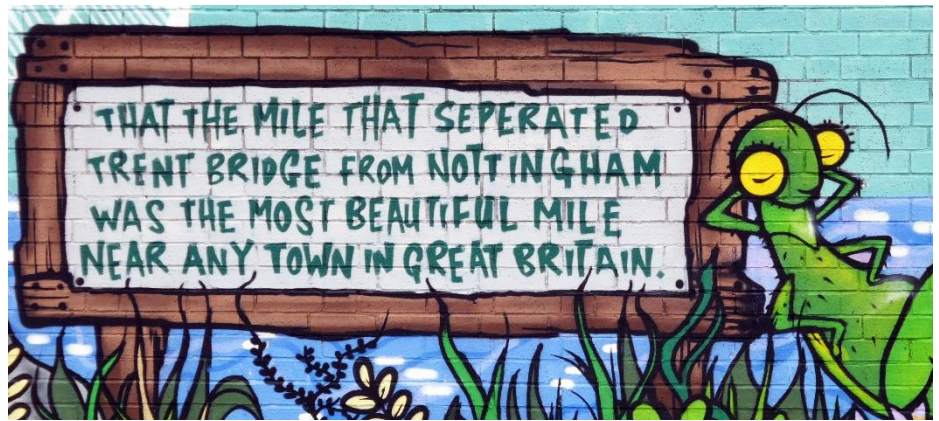 THAT THE MILE THAT SEPERATED
TRENT BRIDGE FROM NOTTINGHAM
WAS THE MOST BEAUTIFUL MILE
NEAR ANY TOWN IN GREAT BRITAIN.